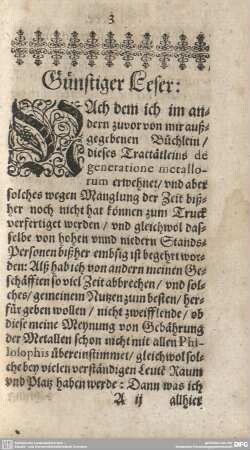 3
Günstiger Leser:
NAch dem ich im an-
dern zuvor von mir auß-
gegebenen Büchlein /
dieses Tractätleins de
generatione metallo-
rum erwehnet / vnd aber
solches wegen Manglung der Zeit biß-
her noch nicht hat können zum Truck
verfertiget werden / vnd gleichwol das-
selbe von hohen vnnd niedern Stands-
Personen bißher embsig ist begehrt wor-
den: Alß hab ich von andern meinen Ge-
schäfften so viel Zeit abbrechen / vnd sol-
ches / gemeinem Nutzen zum besten / her-
für geben wollen / nicht zweifflende / ob
diese meine Meynung von Gebährung
der Metallen schon nicht mit allen Phi-
losophis übereinstimmet / gleichwol sol-
che bey vielen verständigen Leuten Raum
vnd Platz haben werde: Dann was ich
A ij allhier